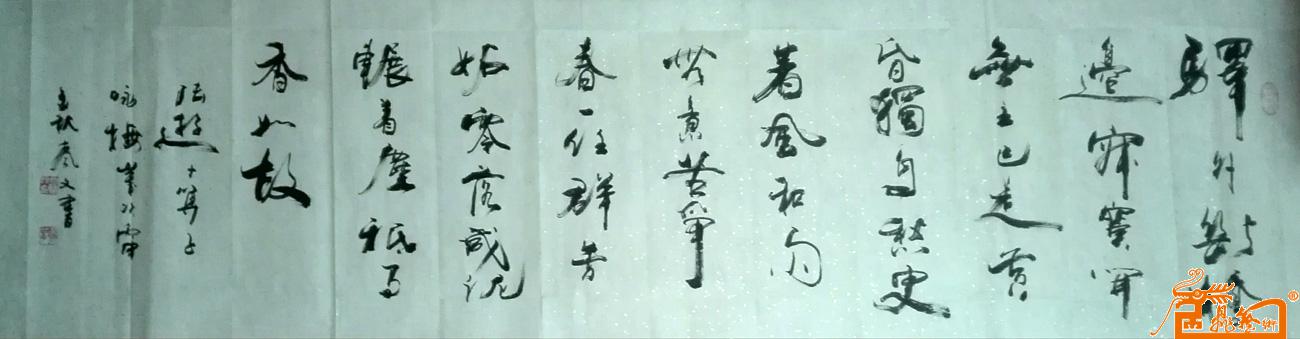 驛外斷橋
邊寂寞開
無主已是黃
昏獨自愁更
著風和雨
無意苦爭
春一任群芳
妒零落成泥
輾著塵祗有
香如故
陸游卜算子
詠梅
文書